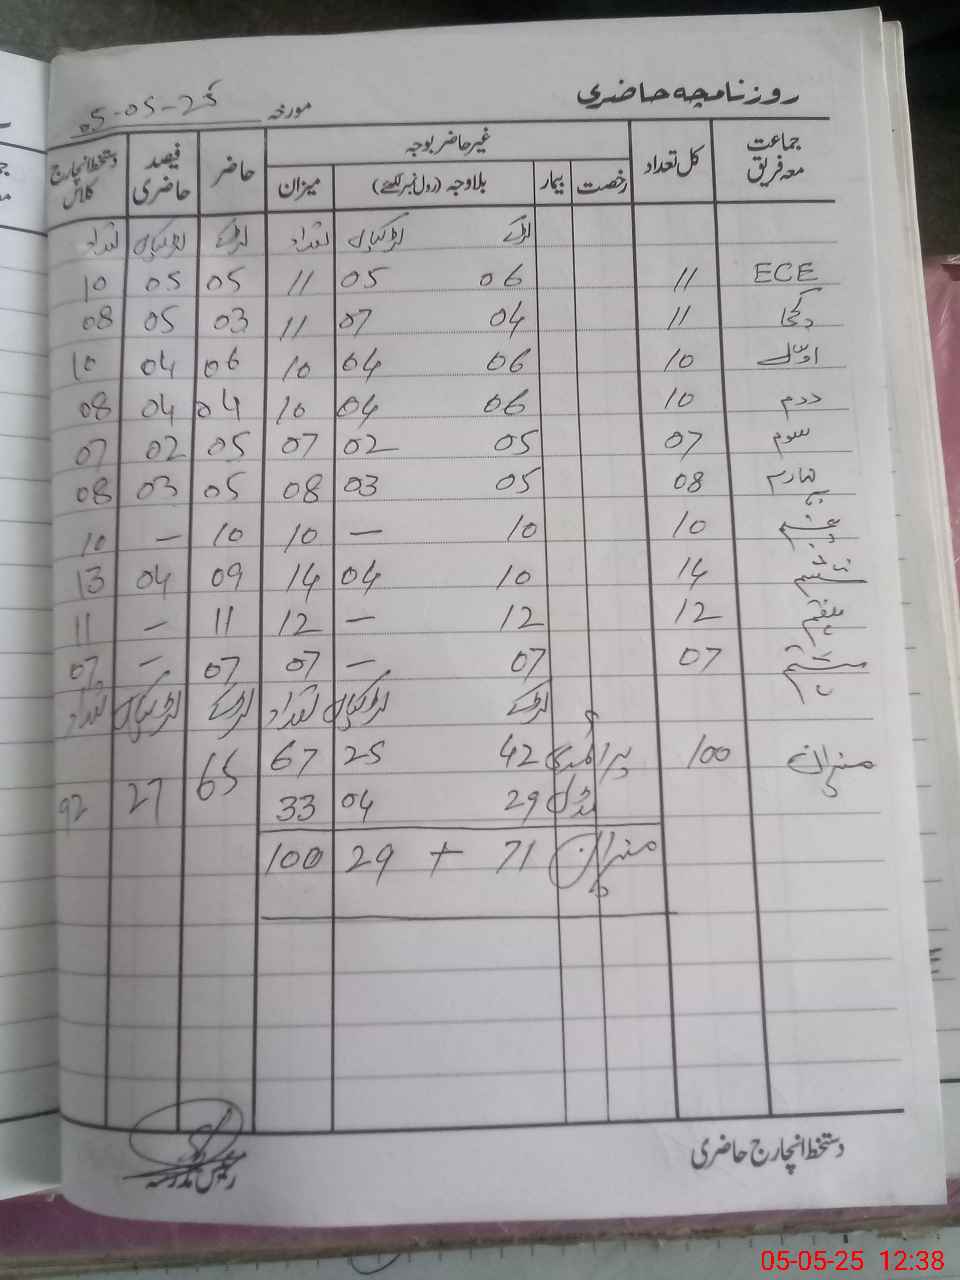 روزنامچہ حاضری مورخہ 05-05-25
جماعت معہ فریق کل تعداد غیر حاضر بوجہ حاضر فیصد حاضری دستخط انچارج کلاس
رخصت بیمار بلاوجہ (رول نمبر لکھئے) میزان
لڑکے لڑکیاں تعداد لڑکے لڑکیاں تعداد
ECE 11 06 05 11 05 05 10
کچی 11 04 07 11 03 05 08
اوّل 10 06 04 10 06 04 10
دوم 10 06 04 10 04 04 08
سوم 07 05 02 07 05 02 07
چہارم 08 05 03 08 05 03 08
پنجم 10 10 — 10 10 — 10
ششم 14 10 04 14 09 04 13
ہفتم 12 12 — 12 11 — 11
ہشتم 07 07 — 07 07 — 07
لڑکے لڑکیاں تعداد لڑکے لڑکیاں تعداد
میزان 100 پرائمری 42 25 67 65 27 92
مڈل 29 04 33
میزان 71 + 29 100
دستخط انچارج حاضری رئیس مدرسہ
05-05-25 12:38